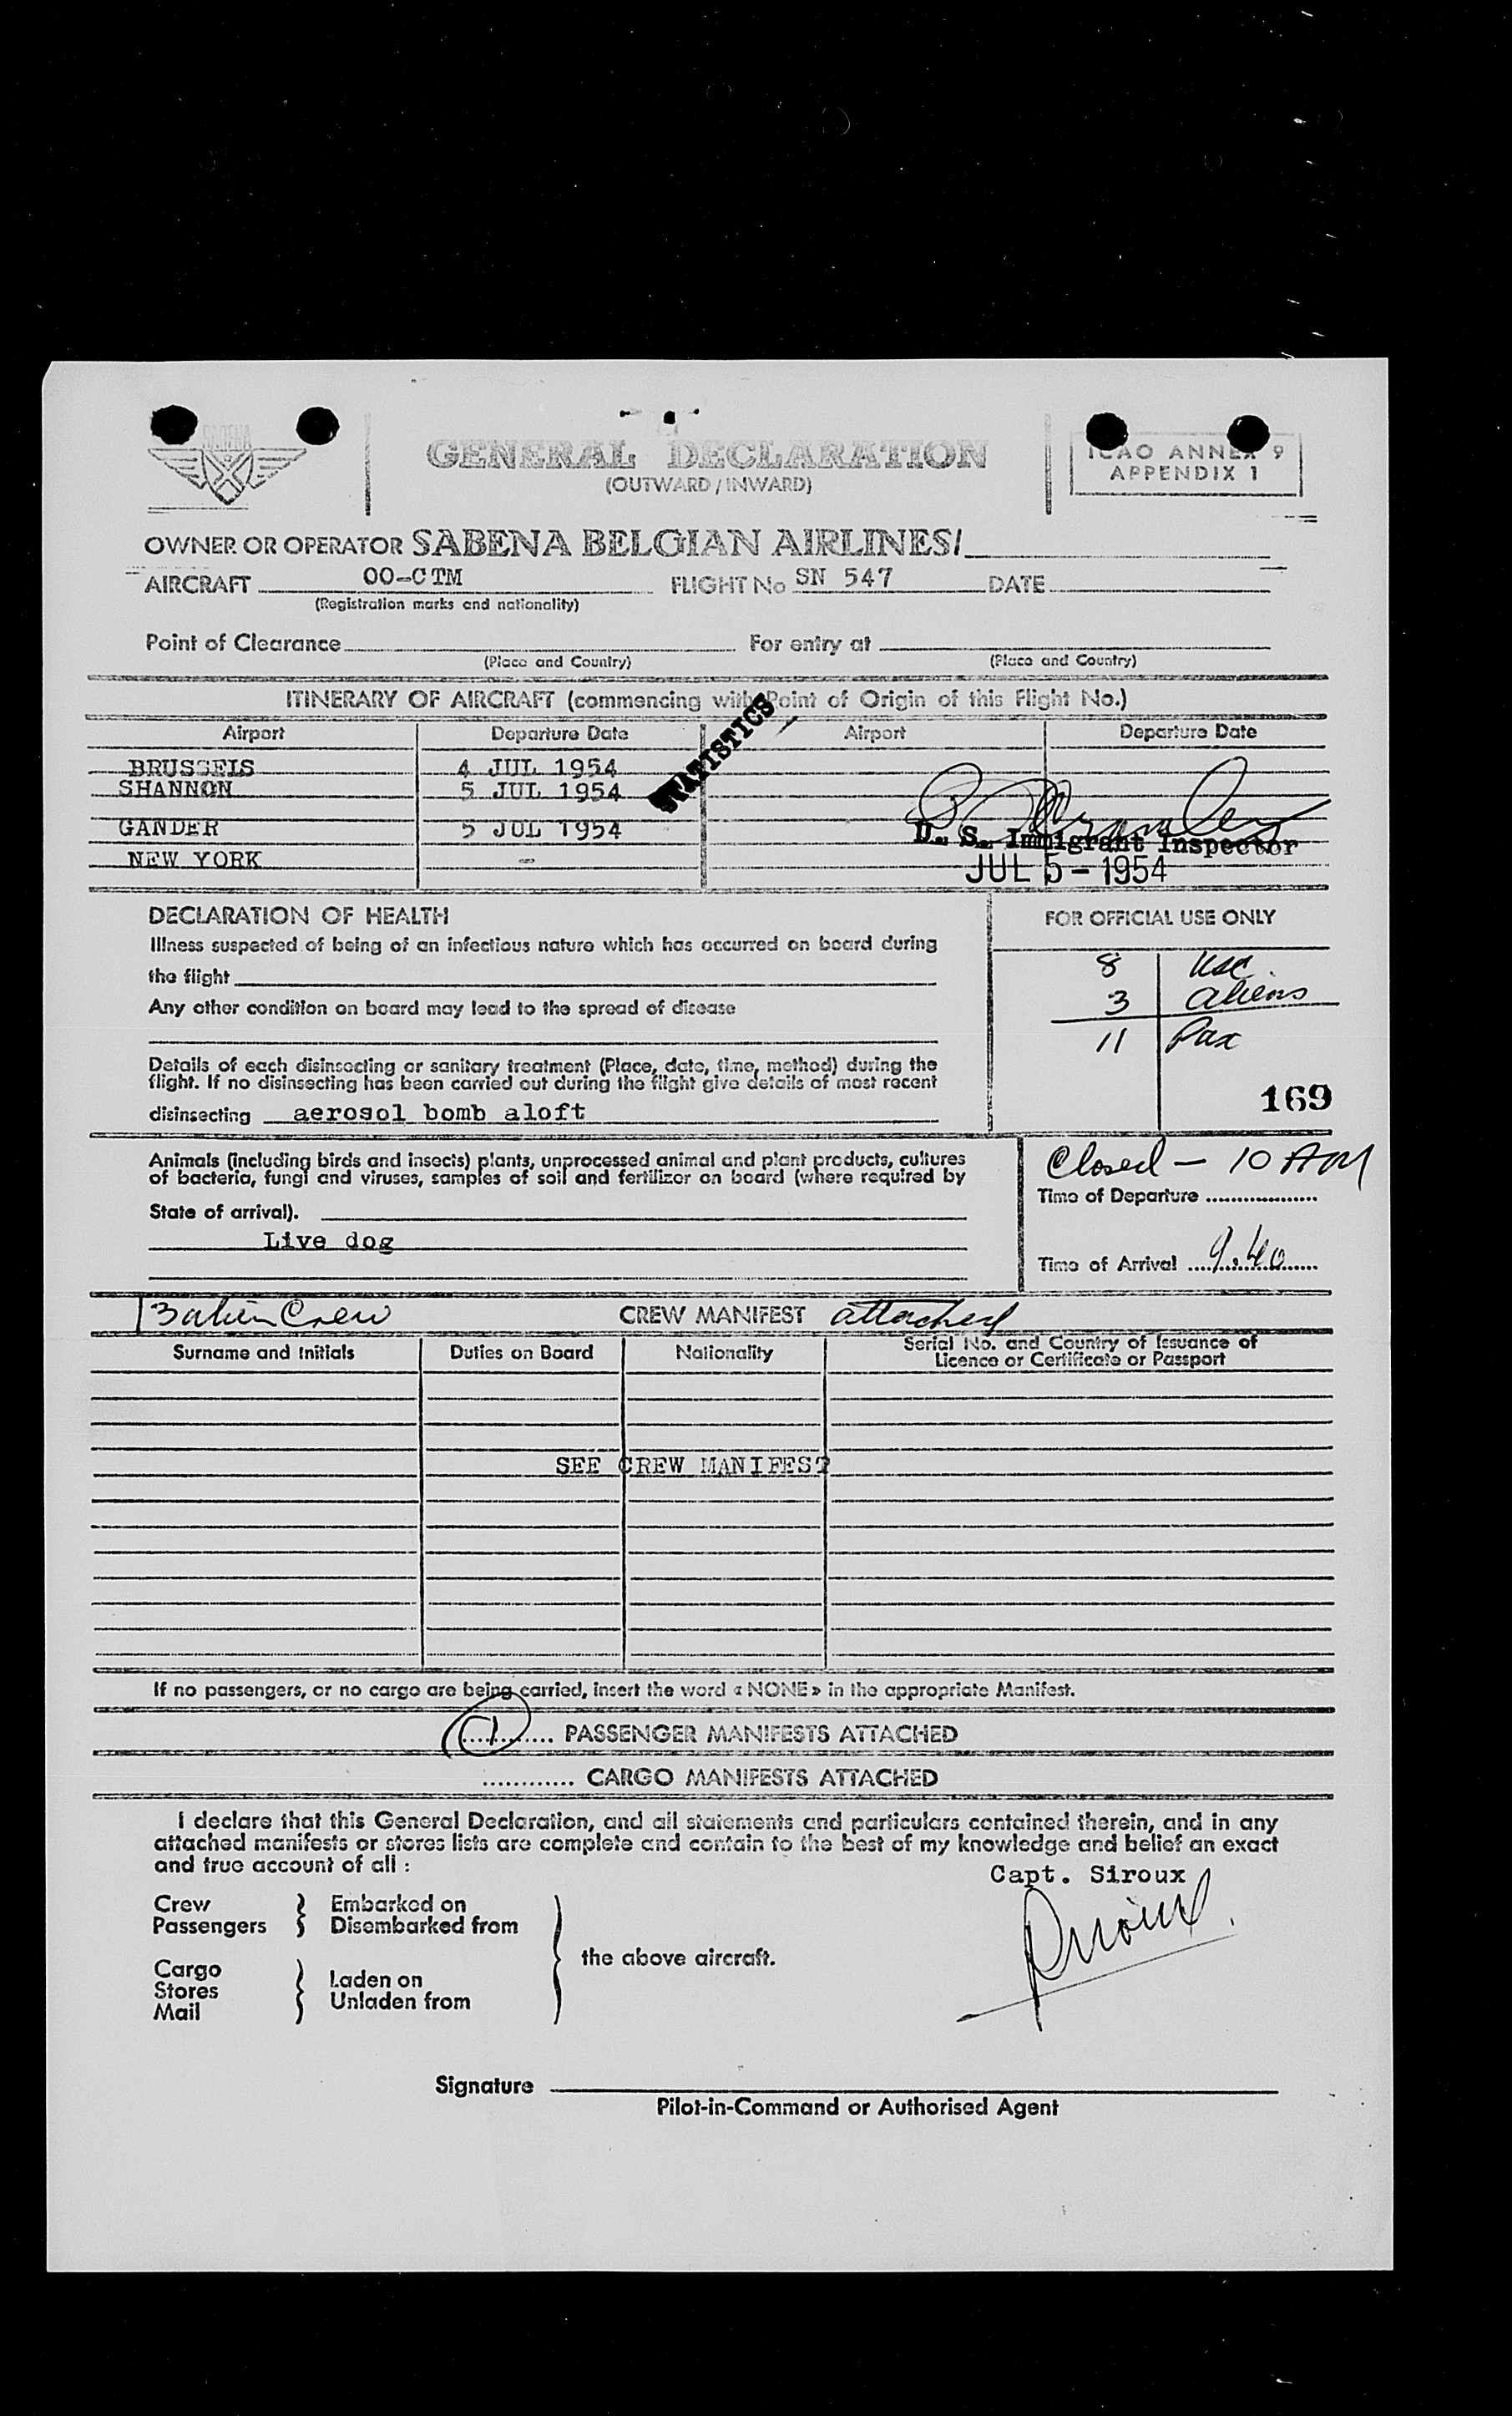 SABENA
GENERAL DECLARATION
(OUTWARD / INWARD)
ICAO ANNEX 9
APPENDIX 1
OWNER OR OPERATOR SABENA BELGIAN AIRLINES/
AIRCRAFT OO-CTM FLIGHT No SN 547 DATE
(Registration marks and nationality)
Point of Clearance For entry at
(Place and Country) (Place and Country)
ITINERARY OF AIRCRAFT (commencing with Point of Origin of this Flight No.)
Airport Departure Date Airport Departure Date
STATISTICS
BRUSSELS 4 JUL 1954
SHANNON 5 JUL 1954
GANDER 5 JUL 1954
NEW YORK -
U. S. Immigrant Inspector
JUL 5 - 1954
DECLARATION OF HEALTH
Illness suspected of being of an infectious nature which has occurred on board during
the flight
Any other condition on board may lead to the spread of disease
Details of each disinsecting or sanitary treatment (Place, date, time, method) during the
flight. If no disinsecting has been carried out during the flight give details of most recent
disinsecting aerosol bomb aloft
FOR OFFICIAL USE ONLY
8 usc
3 aliens
11 Pax
169
Animals (including birds and insects) plants, unprocessed animal and plant products, cultures
of bacteria, fungi and viruses, samples of soil and fertilizer on board (where required by
State of arrival).
Live dog
Closed - 10 AM
Time of Departure
Time of Arrival 9.40
Crew CREW MANIFEST attached
Surname and Initials Duties on Board Nationality Serial No. and Country of Issuance of
Licence or Certificate or Passport
SEE CREW MANIFEST
If no passengers, or no cargo are being carried, insert the word « NONE » in the appropriate Manifest.
1 PASSENGER MANIFESTS ATTACHED
CARGO MANIFESTS ATTACHED
I declare that this General Declaration, and all statements and particulars contained therein, and in any
attached manifests or stores lists are complete and contain to the best of my knowledge and belief an exact
and true account of all :
Capt. Siroux
Crew Embarked on
Passengers Disembarked from
the above aircraft.
Cargo
Stores Laden on
Mail Unladen from
Signature
Pilot-in-Command or Authorised Agent